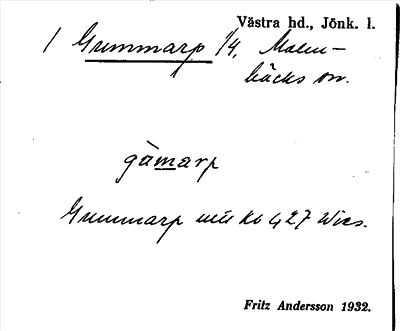 Västra hd., Jönk. l.
/ Gummarp 1/4, Malm-
bäcks sn.
gåmarp
Gummarp 427 Wies.
Fritz Andersson 1932.